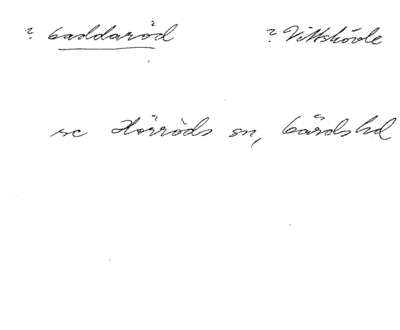 ? Gaddaröd ? Vittskövle
sc Hörröds sn, Gärds hd